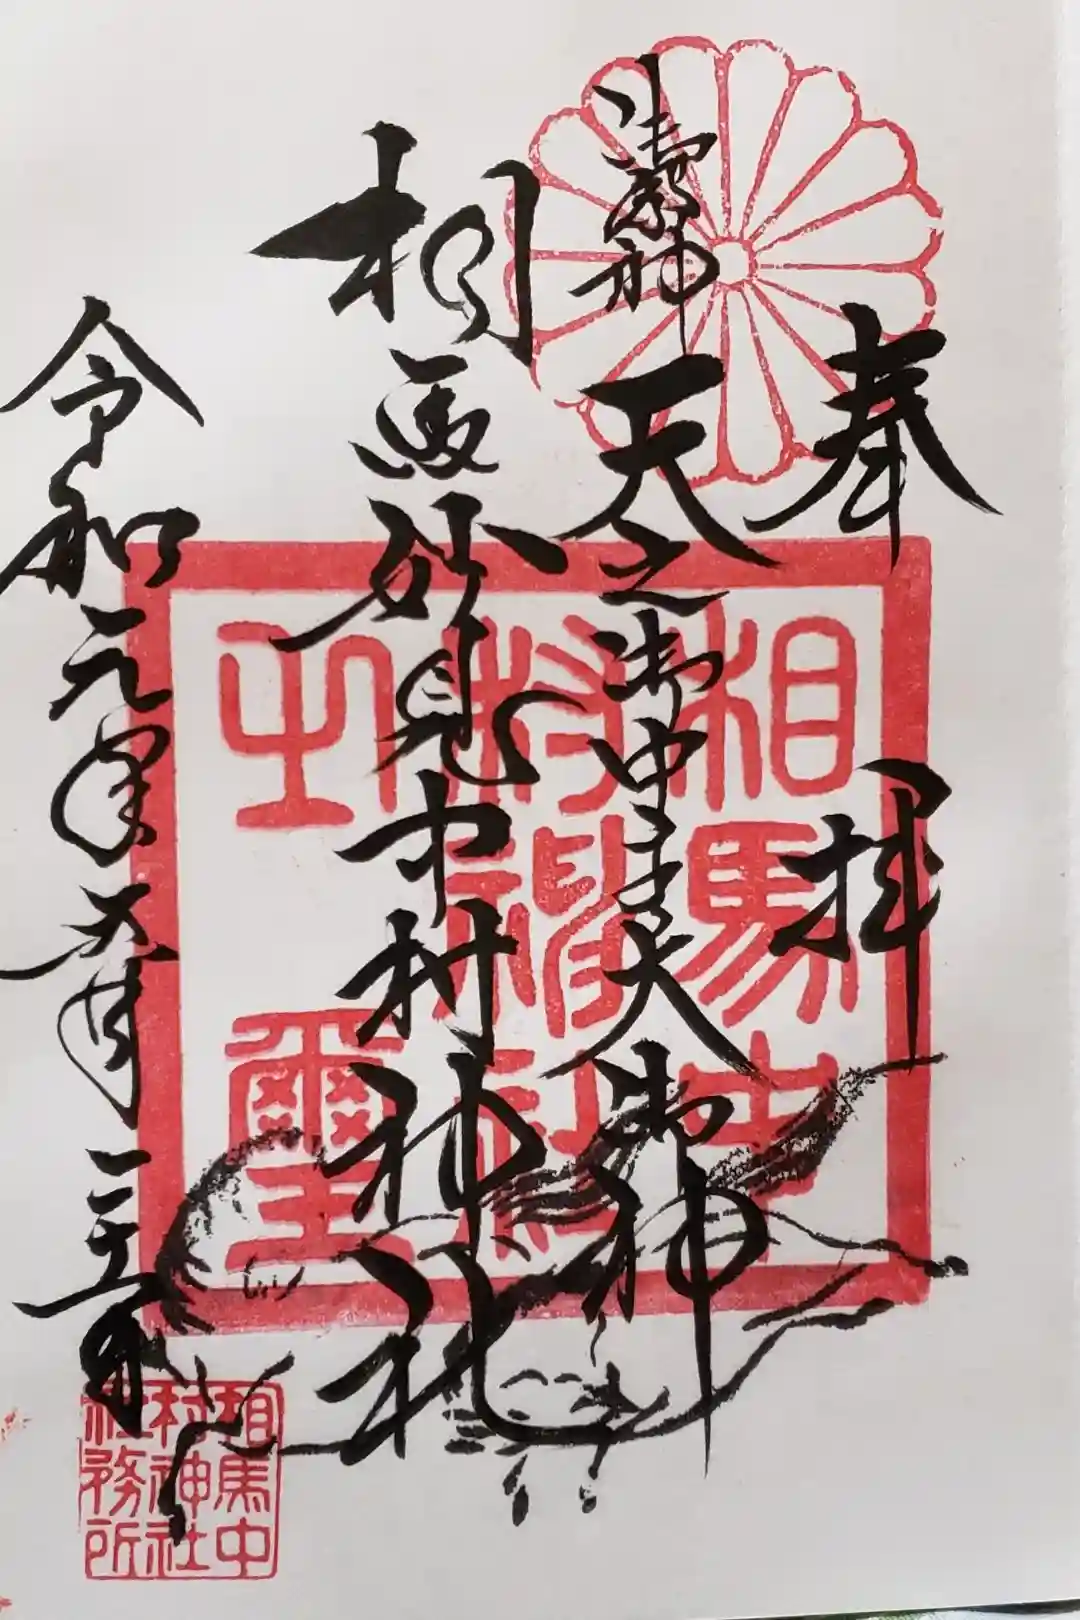 奉拝
御祭神 天之御中主大御神
相馬妙見中村神社
令和元年六月二十五日
相馬中
村神社
之璽
相馬中
村神社
社務所